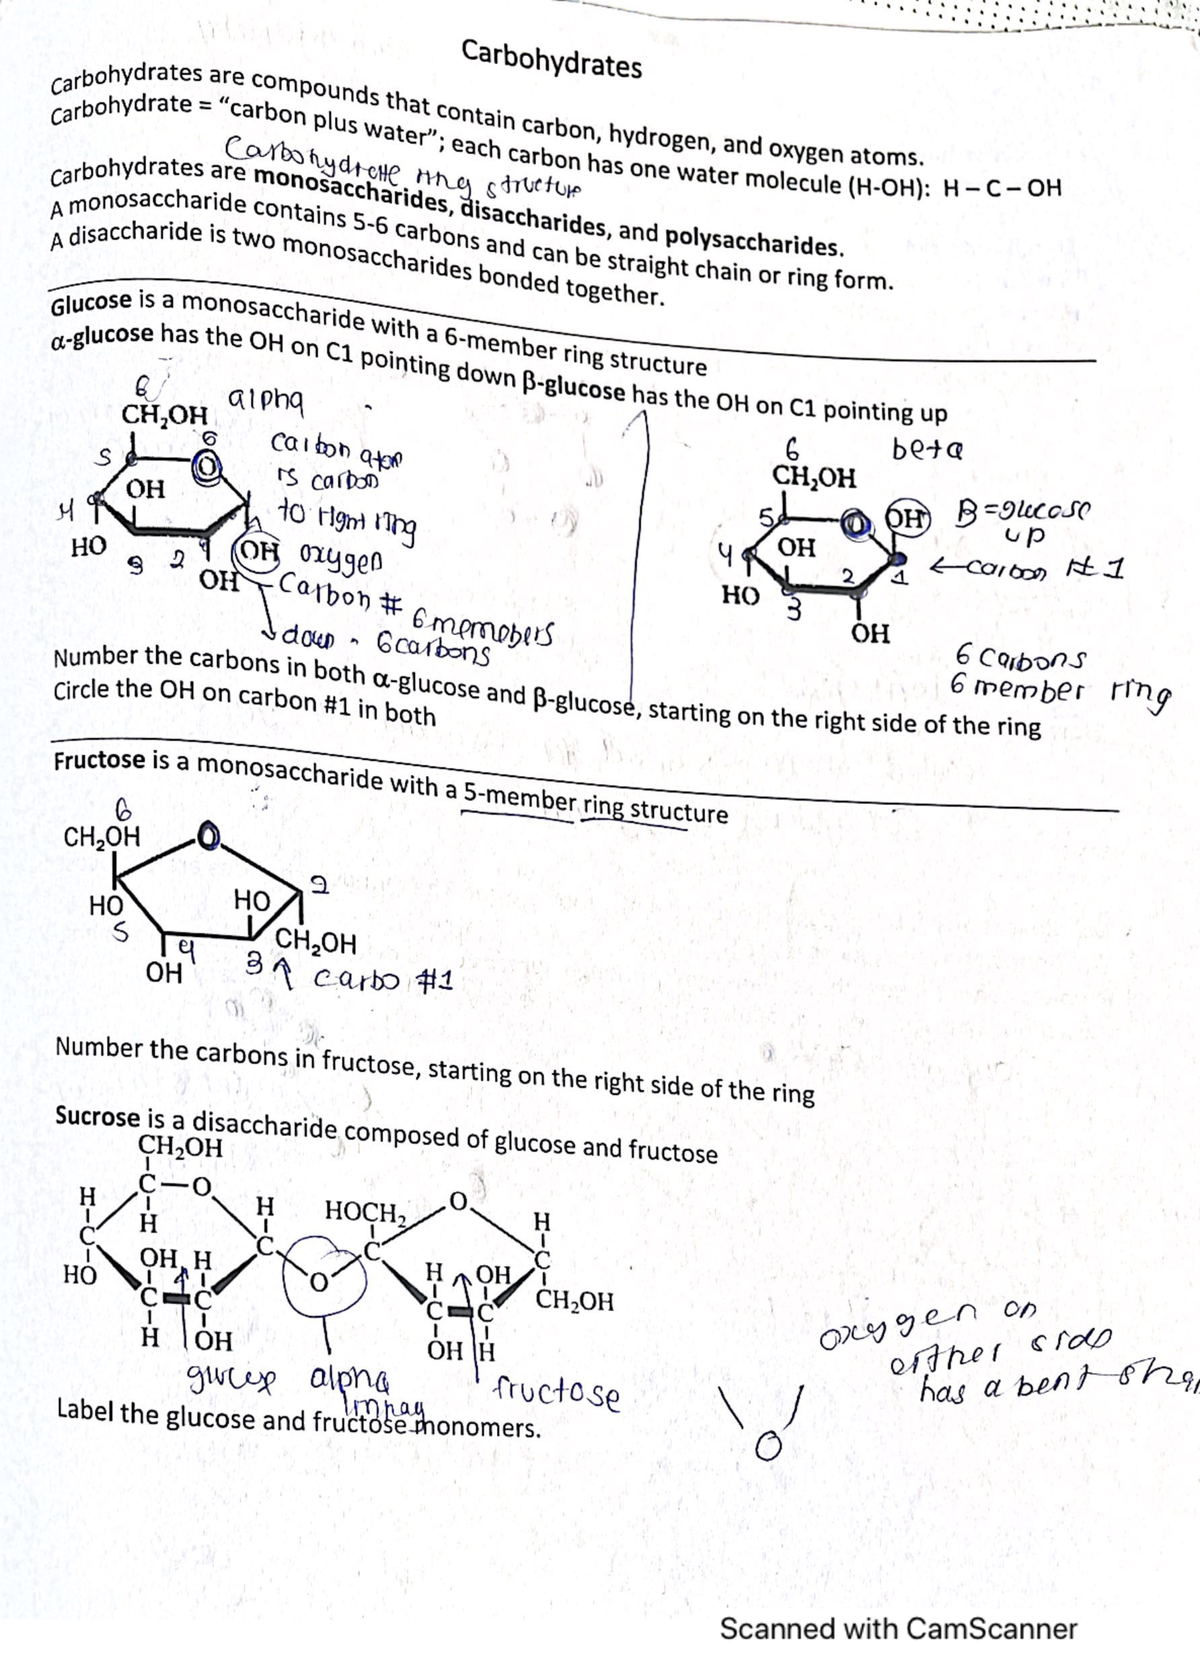 Carbohydrates
Carbohydrates are compounds that contain carbon, hydrogen, and oxygen atoms.
Carbohydrate = "carbon plus water"; each carbon has one water molecule (H-OH): H – C – OH
Carbohydrate ring structure
Carbohydrates are monosaccharides, disaccharides, and polysaccharides.
A monosaccharide contains 5-6 carbons and can be straight chain or ring form.
A disaccharide is two monosaccharides bonded together.
Glucose is a monosaccharide with a 6-member ring structure
α-glucose has the OH on C1 pointing down β-glucose has the OH on C1 pointing up
6 alpha
CH₂OH
6
5 O
OH
4
HO 3 2 1 OH
OH
carbon
is carbon
to right ring
oxygen
Carbon # 6 memobers
down - 6 carbons
6 beta
CH₂OH
5 O OH B=glucose
up
4 OH
HO 3 2 1 ←carbon #1
OH
6 Carbons
6 member ring
Number the carbons in both α-glucose and β-glucose, starting on the right side of the ring
Circle the OH on carbon #1 in both
Fructose is a monosaccharide with a 5-member ring structure
6
CH₂OH O
HO HO 2
5 4 CH₂OH
OH 3 ↑ carbo #1
Number the carbons in fructose, starting on the right side of the ring
Sucrose is a disaccharide composed of glucose and fructose
CH₂OH
C—O O
H H H HOCH₂ H
C C C C
HO OH H O H OH CH₂OH
C C C C
H OH OH H
alpha fructose
oxygen on
either side
has a bent
O
Label the glucose and fructose monomers.
Scanned with CamScanner